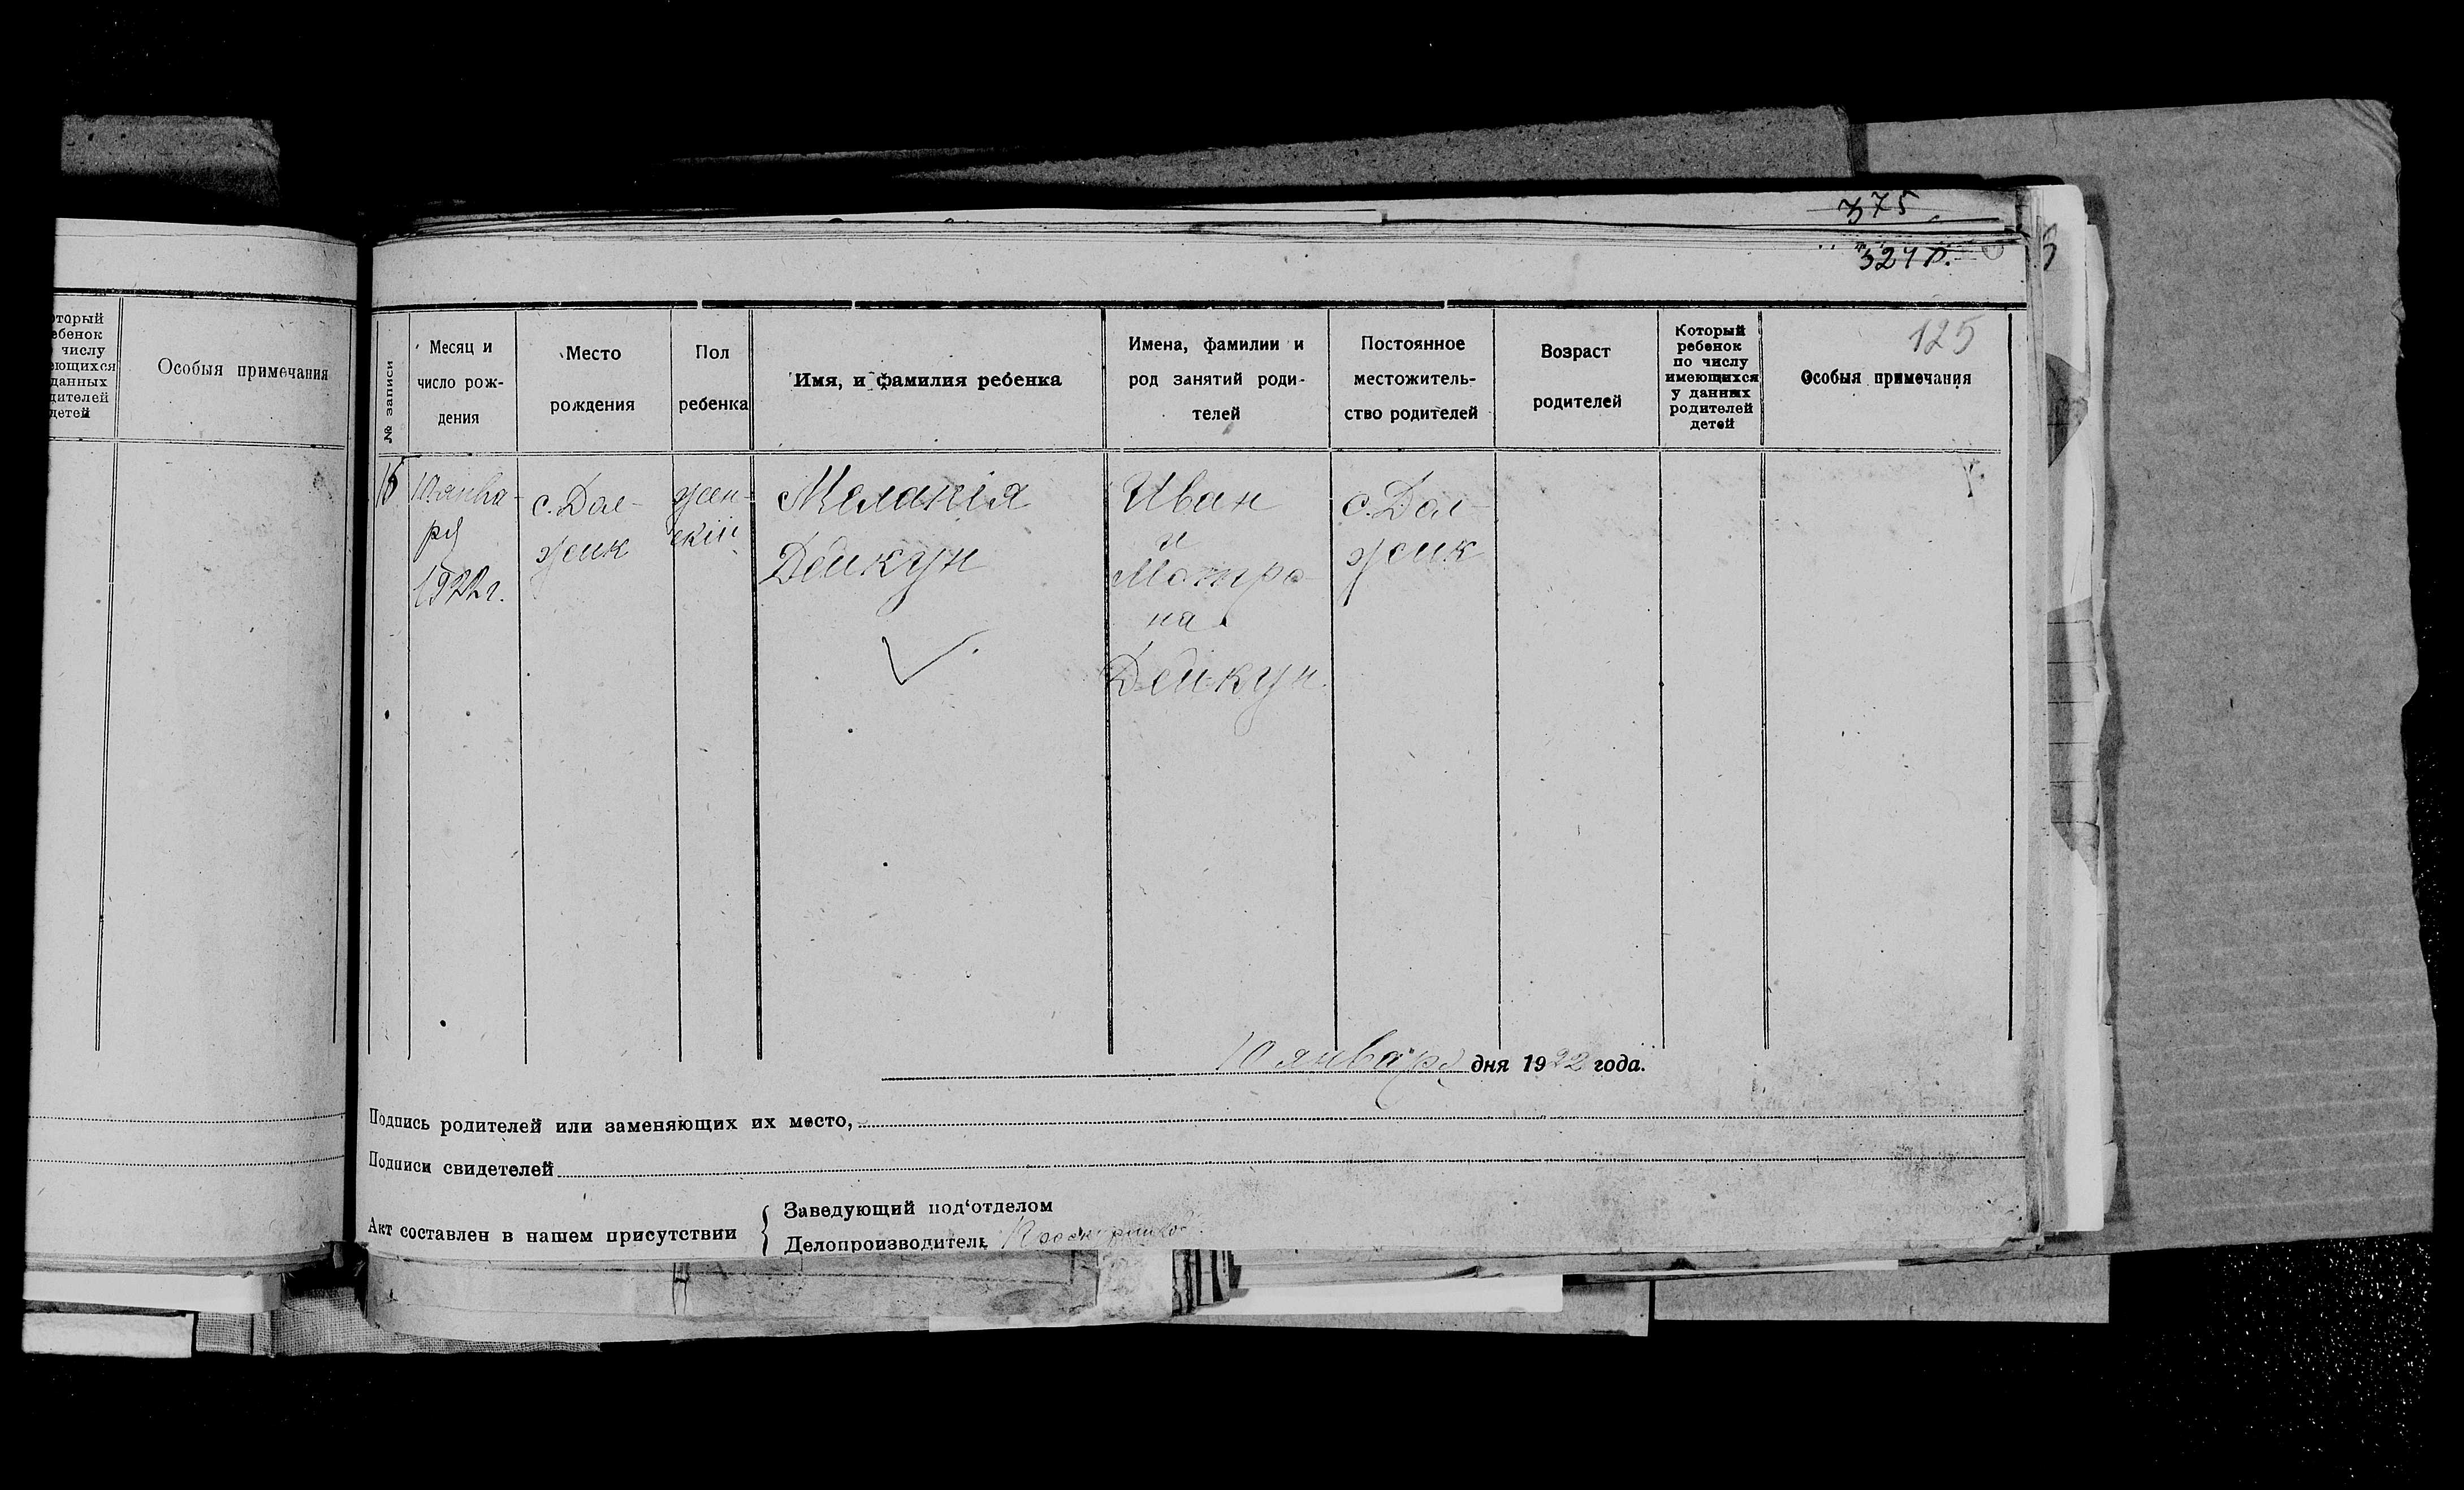 375
324 р.
125
оторый
ебенок
числу
еющихся
данных
дителей
детей
Особыя примечания
№ записи
Месяц и
число рож-
дения
Место
рождения
Пол
ребенка
Имя, и фамилия ребенка
Имена, фамилии и
род занятий роди-
телей
Постоянное
местожитель-
ство родителей
Возраст
родителей
Который
ребенок
по числу
имеющихся
у данных
родителей
детей
Особыя примечания
10 янва-
ря
1922 г.
с. Дол-
жик
жен-
скій
Меланія
Дейкун
Иван
и
Матро-
на
Дейкун.
с. Дол-
жик
10 января дня 1922 года.
Подпись родителей или заменяющих их место,
Подписи свидетелей
Акт составлен в нашем присутствии
Заведующий под'отделом
Делопроизводитель